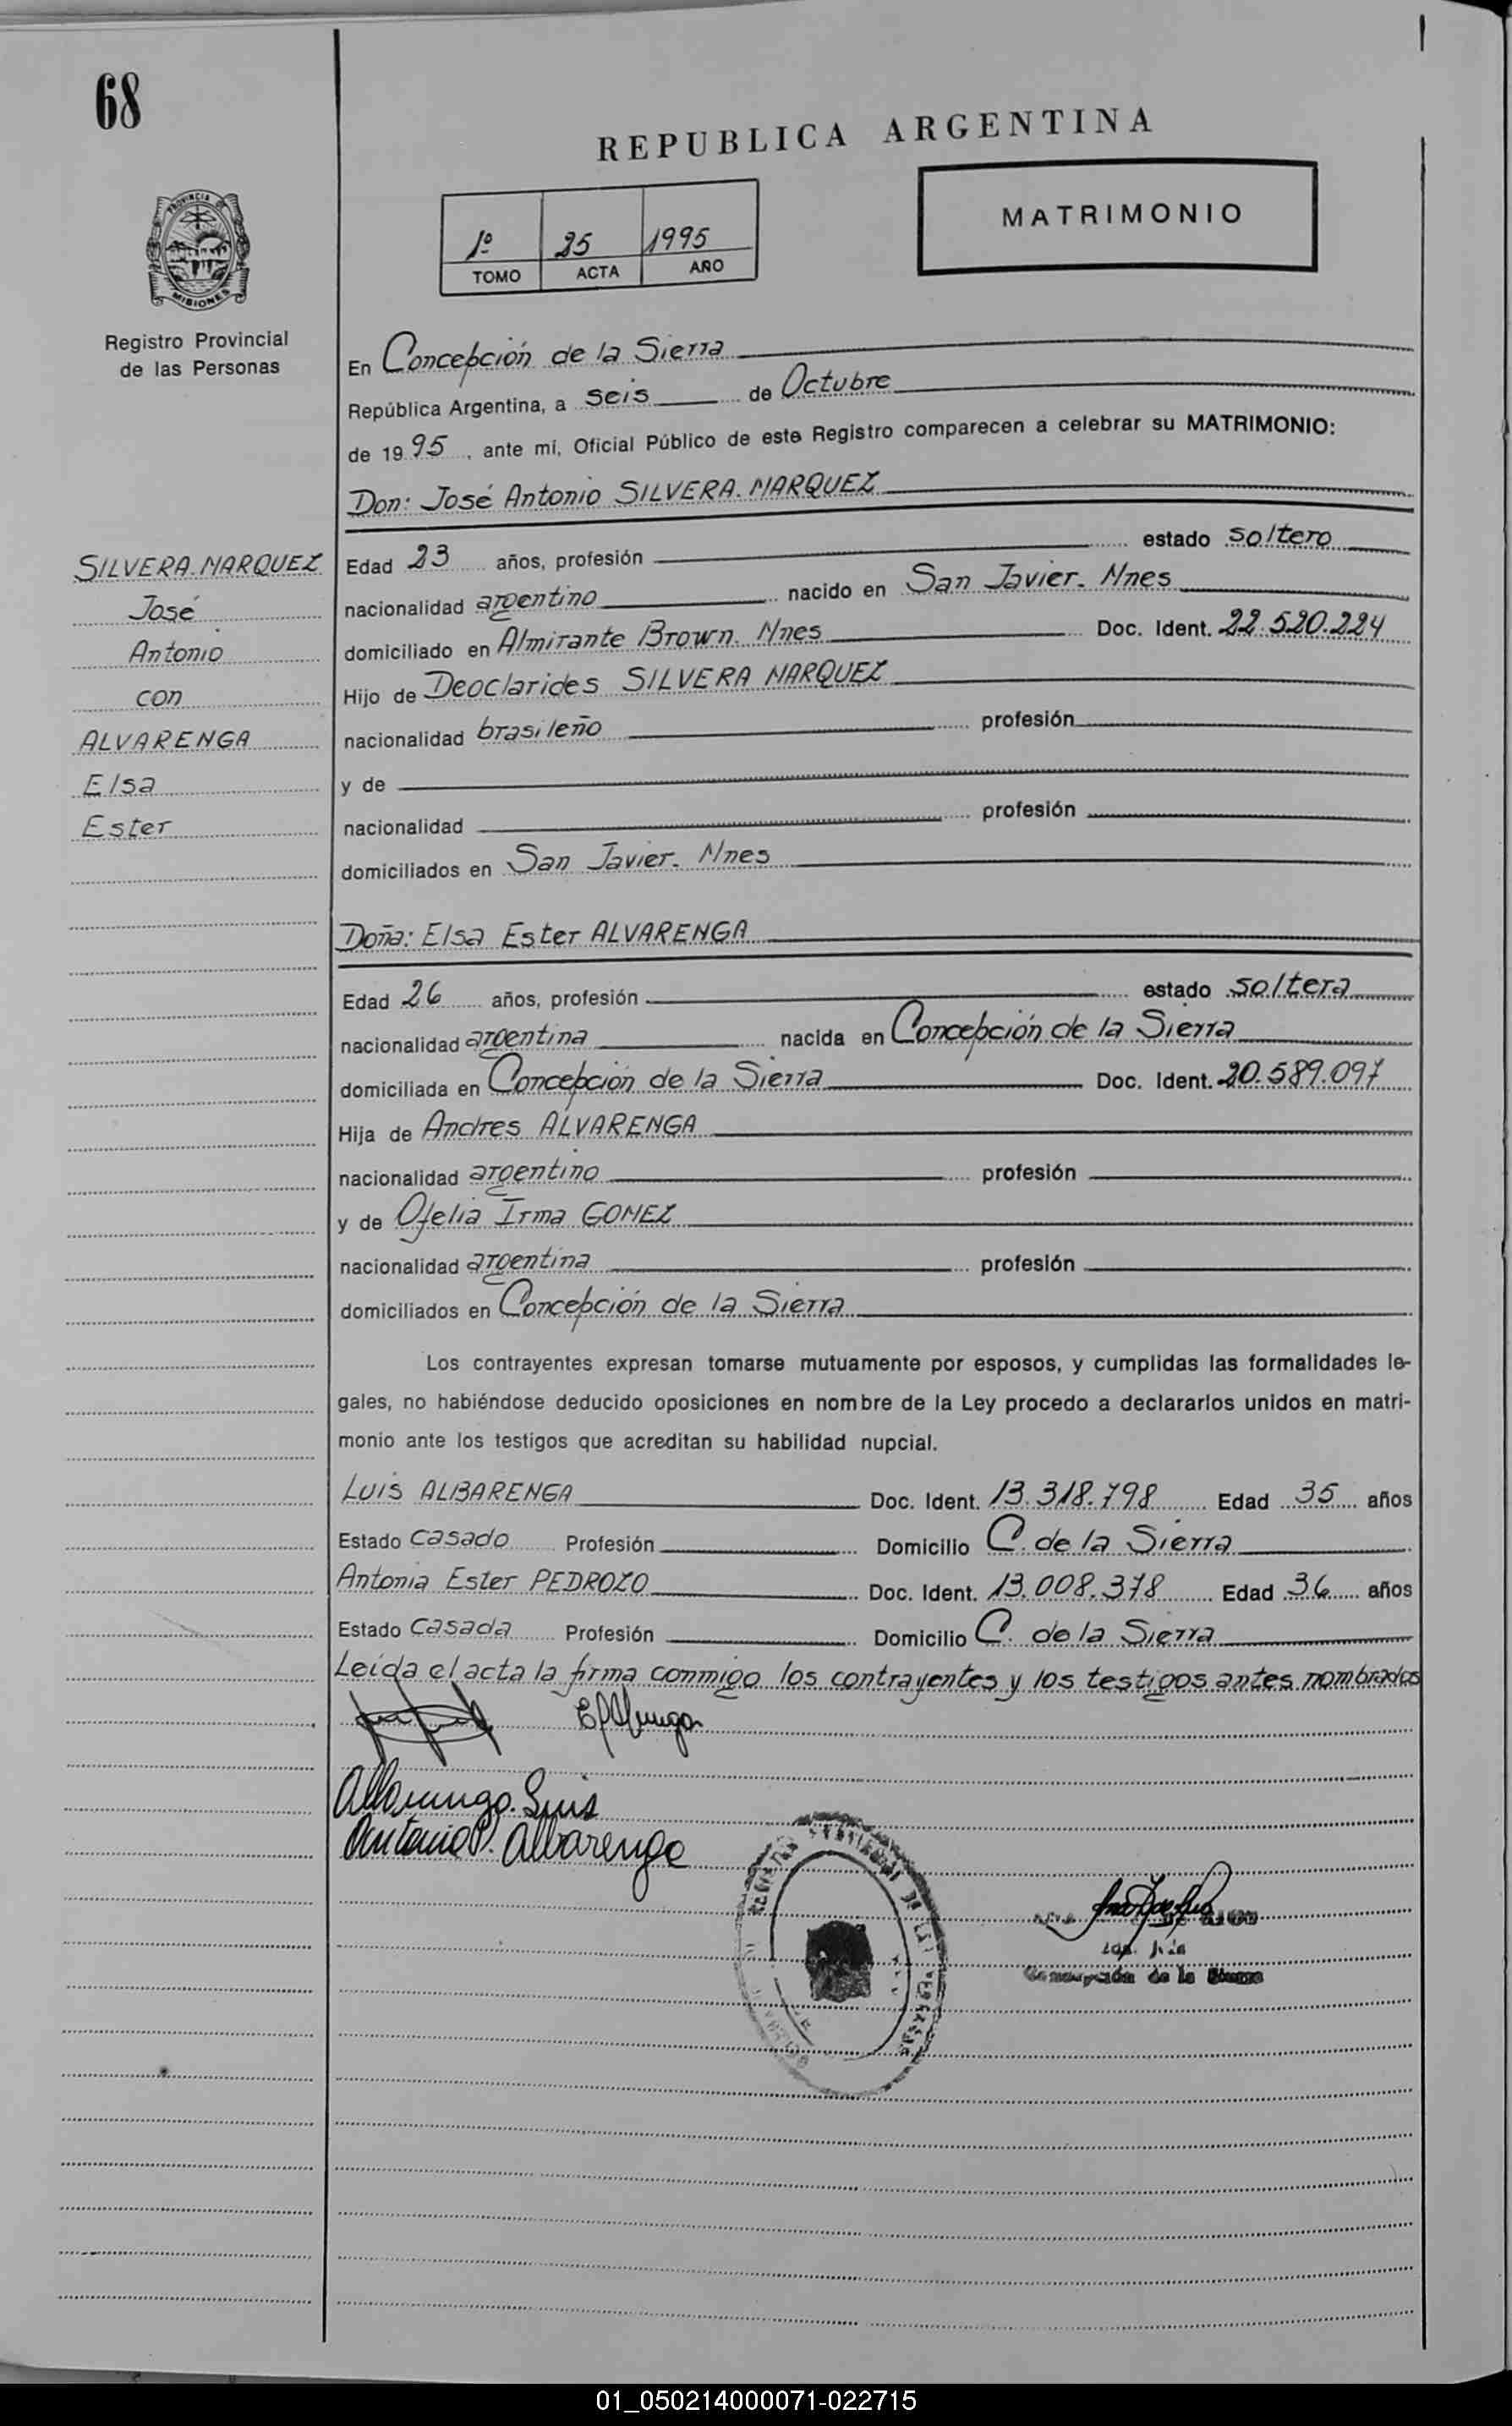 68
REPUBLICA ARGENTINA
PROVINCIA DE
MISIONES
Registro Provincial
de las Personas
1º 25 1995
TOMO ACTA AÑO
MATRIMONIO
En Concepción de la Sierra
República Argentina, a seis de Octubre
de 1995, ante mí, Oficial Público de este Registro comparecen a celebrar su MATRIMONIO:
Don: José Antonio SILVERA MARQUEZ
SILVERA MARQUEZ
José
Antonio
con
ALVARENGA
Elsa
Ester
Edad 23 años, profesión estado soltero
nacionalidad argentino nacido en San Javier. Mnes
domiciliado en Almirante Brown. Mnes Doc. Ident. 22.520.224
Hijo de Deoclarides SILVERA MARQUEZ
nacionalidad brasileño profesión
y de
nacionalidad profesión
domiciliados en San Javier. Mnes
Doña: Elsa Ester ALVARENGA
Edad 26 años, profesión estado soltera
nacionalidad argentina nacida en Concepción de la Sierra
domiciliada en Concepción de la Sierra Doc. Ident. 20.589.097
Hija de Andres ALVARENGA
nacionalidad argentino profesión
y de Ofelia Irma GOMEZ
nacionalidad argentina profesión
domiciliados en Concepción de la Sierra
Los contrayentes expresan tomarse mutuamente por esposos, y cumplidas las formalidades le-
gales, no habiéndose deducido oposiciones en nombre de la Ley procedo a declararlos unidos en matri-
monio ante los testigos que acreditan su habilidad nupcial.
Luis ALBARENGA Doc. Ident. 13.318.798 Edad 35 años
Estado casado Profesión Domicilio C. de la Sierra
Antonia Ester PEDROZO Doc. Ident. 13.008.378 Edad 36 años
Estado casada Profesión Domicilio C. de la Sierra
Leída el acta la firma conmigo los contrayentes y los testigos antes nombrados
Albarenga Luis
Antonia P. Albarenga
Concepción de la Sierra
01_050214000071-022715